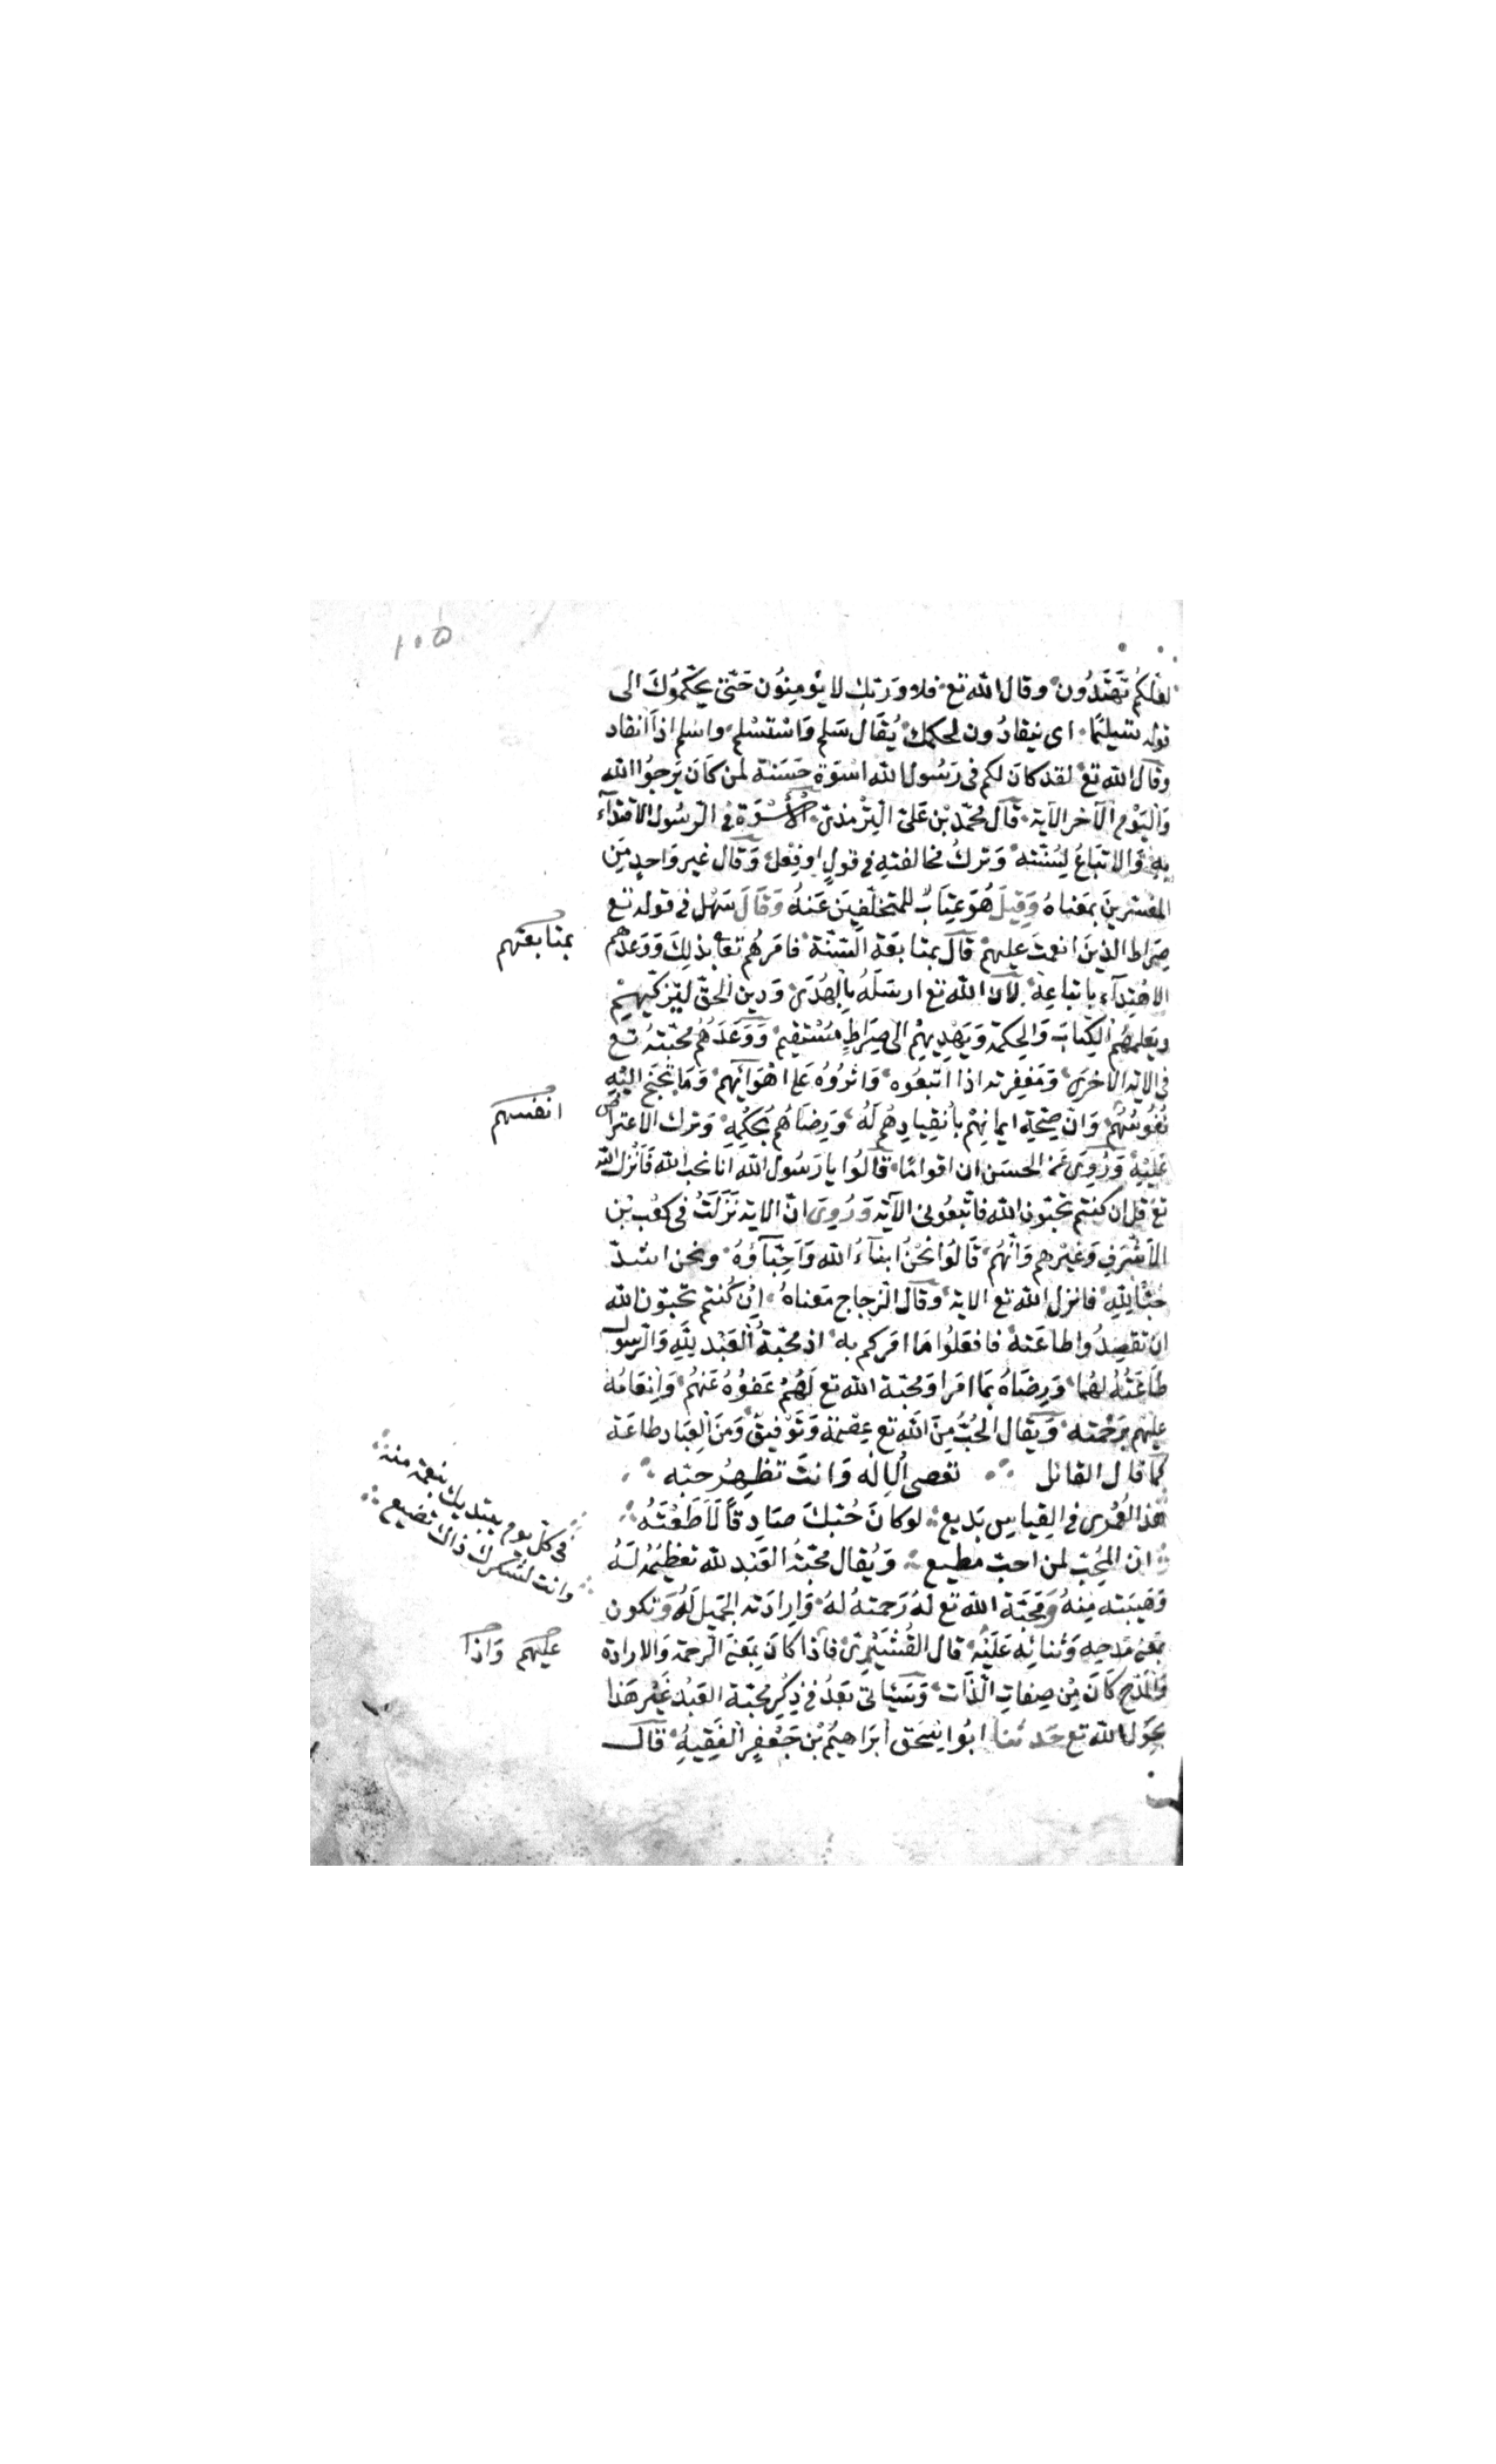 ١٠٥
لعلكم تَهْتَدُون وقال الله تع فلا وَرَبّك لا يُؤمِنُون حَتّىٰ يحكّمُوكَ الى
قوله تسليمًا اى ينقادُون لحكمك يُقَال سَلم وَاسْتسْلم واسْلم اذا انقاد
وقال الله تع لقد كانَ لكم فى رَسُول الله اسْوَة حَسَنة لمن كَانَ يَرجُوا الله
وَاليَوْم الآخر الآية قال محمّد بْن عَلىّ التِرْمذىّ الأُسْوَة فى الرسُول الاقتداَء
بهِ وَالاتبَاعُ لِسُنّته وَتركُ مخالفتهِ فى قولٍ اوفِعْل وَقال غير وَاحدٍ مِنَ
المفسّرينَ بمَعناهُ وَقِيلَ هُوَ عِتَابٌ للمتخلّفِينَ عَنهُ وَقَالَ سَهْل فى قوله تع
صِرَاط الذينَ انعمتَ عليهم قالَ بمتابَعَة السّنّة فامَرهُم تع بذلِكَ وَوَعَدهم
بمتابعتهم
الاهْتِدآء باتباعِهِ لانّ الله تع ارسَلَهُ بِالهُدَىٰ وَدِين الحَقّ ليُزكّيهِمْ
ويُعلمهُم الكِتابَ وَالحِكمة وَيَهْدِيهم الى صِرَاطٍ مُسْتقِيم وَوَعَدَهُم محَبّتهُ تع
فى الاية الاخرىٰ وَمَغفِرته اذا اتّبعُوه وَآثرُوهُ عَلى اهْوَائِهم وَمَا تَجنح اليْهِ
نُفُوسُهُم وَانّ صِحّة ايمانِهِمْ بانقِيادِهُم لَهُ وَرِضَاهُم بحُكمِهِ وَترك الاعتراض
انفسهم
عَلَيْهِ وَرُوِىَ عَن الحسَن ان اقوامًا قَالُوا يا رَسُول الله انا نحبّ الله فَانْزل الله
تع قل ان كنتم تحبّون الله فاتّبعُونى الآية وَرُوِىَ انّ الاية نَزَلَتْ فى كعْب بْن
الاَشْرَفِ وَغيْرهم وَأنّهُمْ قَالوُا نَحْنُ ابنآءُ الله وَاَحِبّآؤُهُ ونحن اشدّ
حُبًّا لِلّهِ فانزل الله تع الاية وَقَال الزجاج مَعناهُ اِن كُنتم تحبّون الله
ان تقصِدُوا طاعَتهُ فافعَلُوا مَا امَركم به اذ محَبّةُ العَبْد لِلّهِ وَالرّسُول
طَاعَتُهُ لهُما وَرِضَاهُ بمَا امَرا وَمَحبّة الله تع لَهُمْ عَفوُهُ عَنهُم وَاِنعَامُه
عليهم برَحْمته وَيُقال الحُبُّ مِنَ اللهِ تع عِصْمة وَتَوْفِيقٌ وَمِنَ العِبَاد طاعَة
كما قال القائل تعصى الإِلٰه وَانتَ تُظهِرُ حبّه
هَذا لعُمْرى فى القِيَاسِ بَديع لو كَانَ حُبّكَ صَادِقًا لَاَطَعْتَهُ
فى كل يوم يبتديك بنعمة منه
وانت لشكرك ذاك تضيع
انّ المُحِبّ لمن احبّ مطيع وَيُقال محَبّةُ العَبْد لله تعظيمُه لَهُ
وَهَيْبَته مِنهُ وَمحَبّة الله تع لهُ رَحمتهُ لهُ وَاِرَادَته الجَميل لَهُ وَتكون
بمَعنى مَدحِهِ وَثنائِه عَلَيْه قال القُشَيْرِىّ فاذا كَانَ بمَعنى الرحمة وَالارادة
عليهم وَاذا
وَالمَدْح كَانَ مِنْ صِفاتِ الذّات وَسَيَأتى بَعدُ فى ذِكر محَبّة العَبْد غَيْر هَذا
بحَوْل الله تع حَدثنا ابُو اِسْحَق ابرَاهيمُ بْن جَعْفرٍ الفقِيهُ قالَ